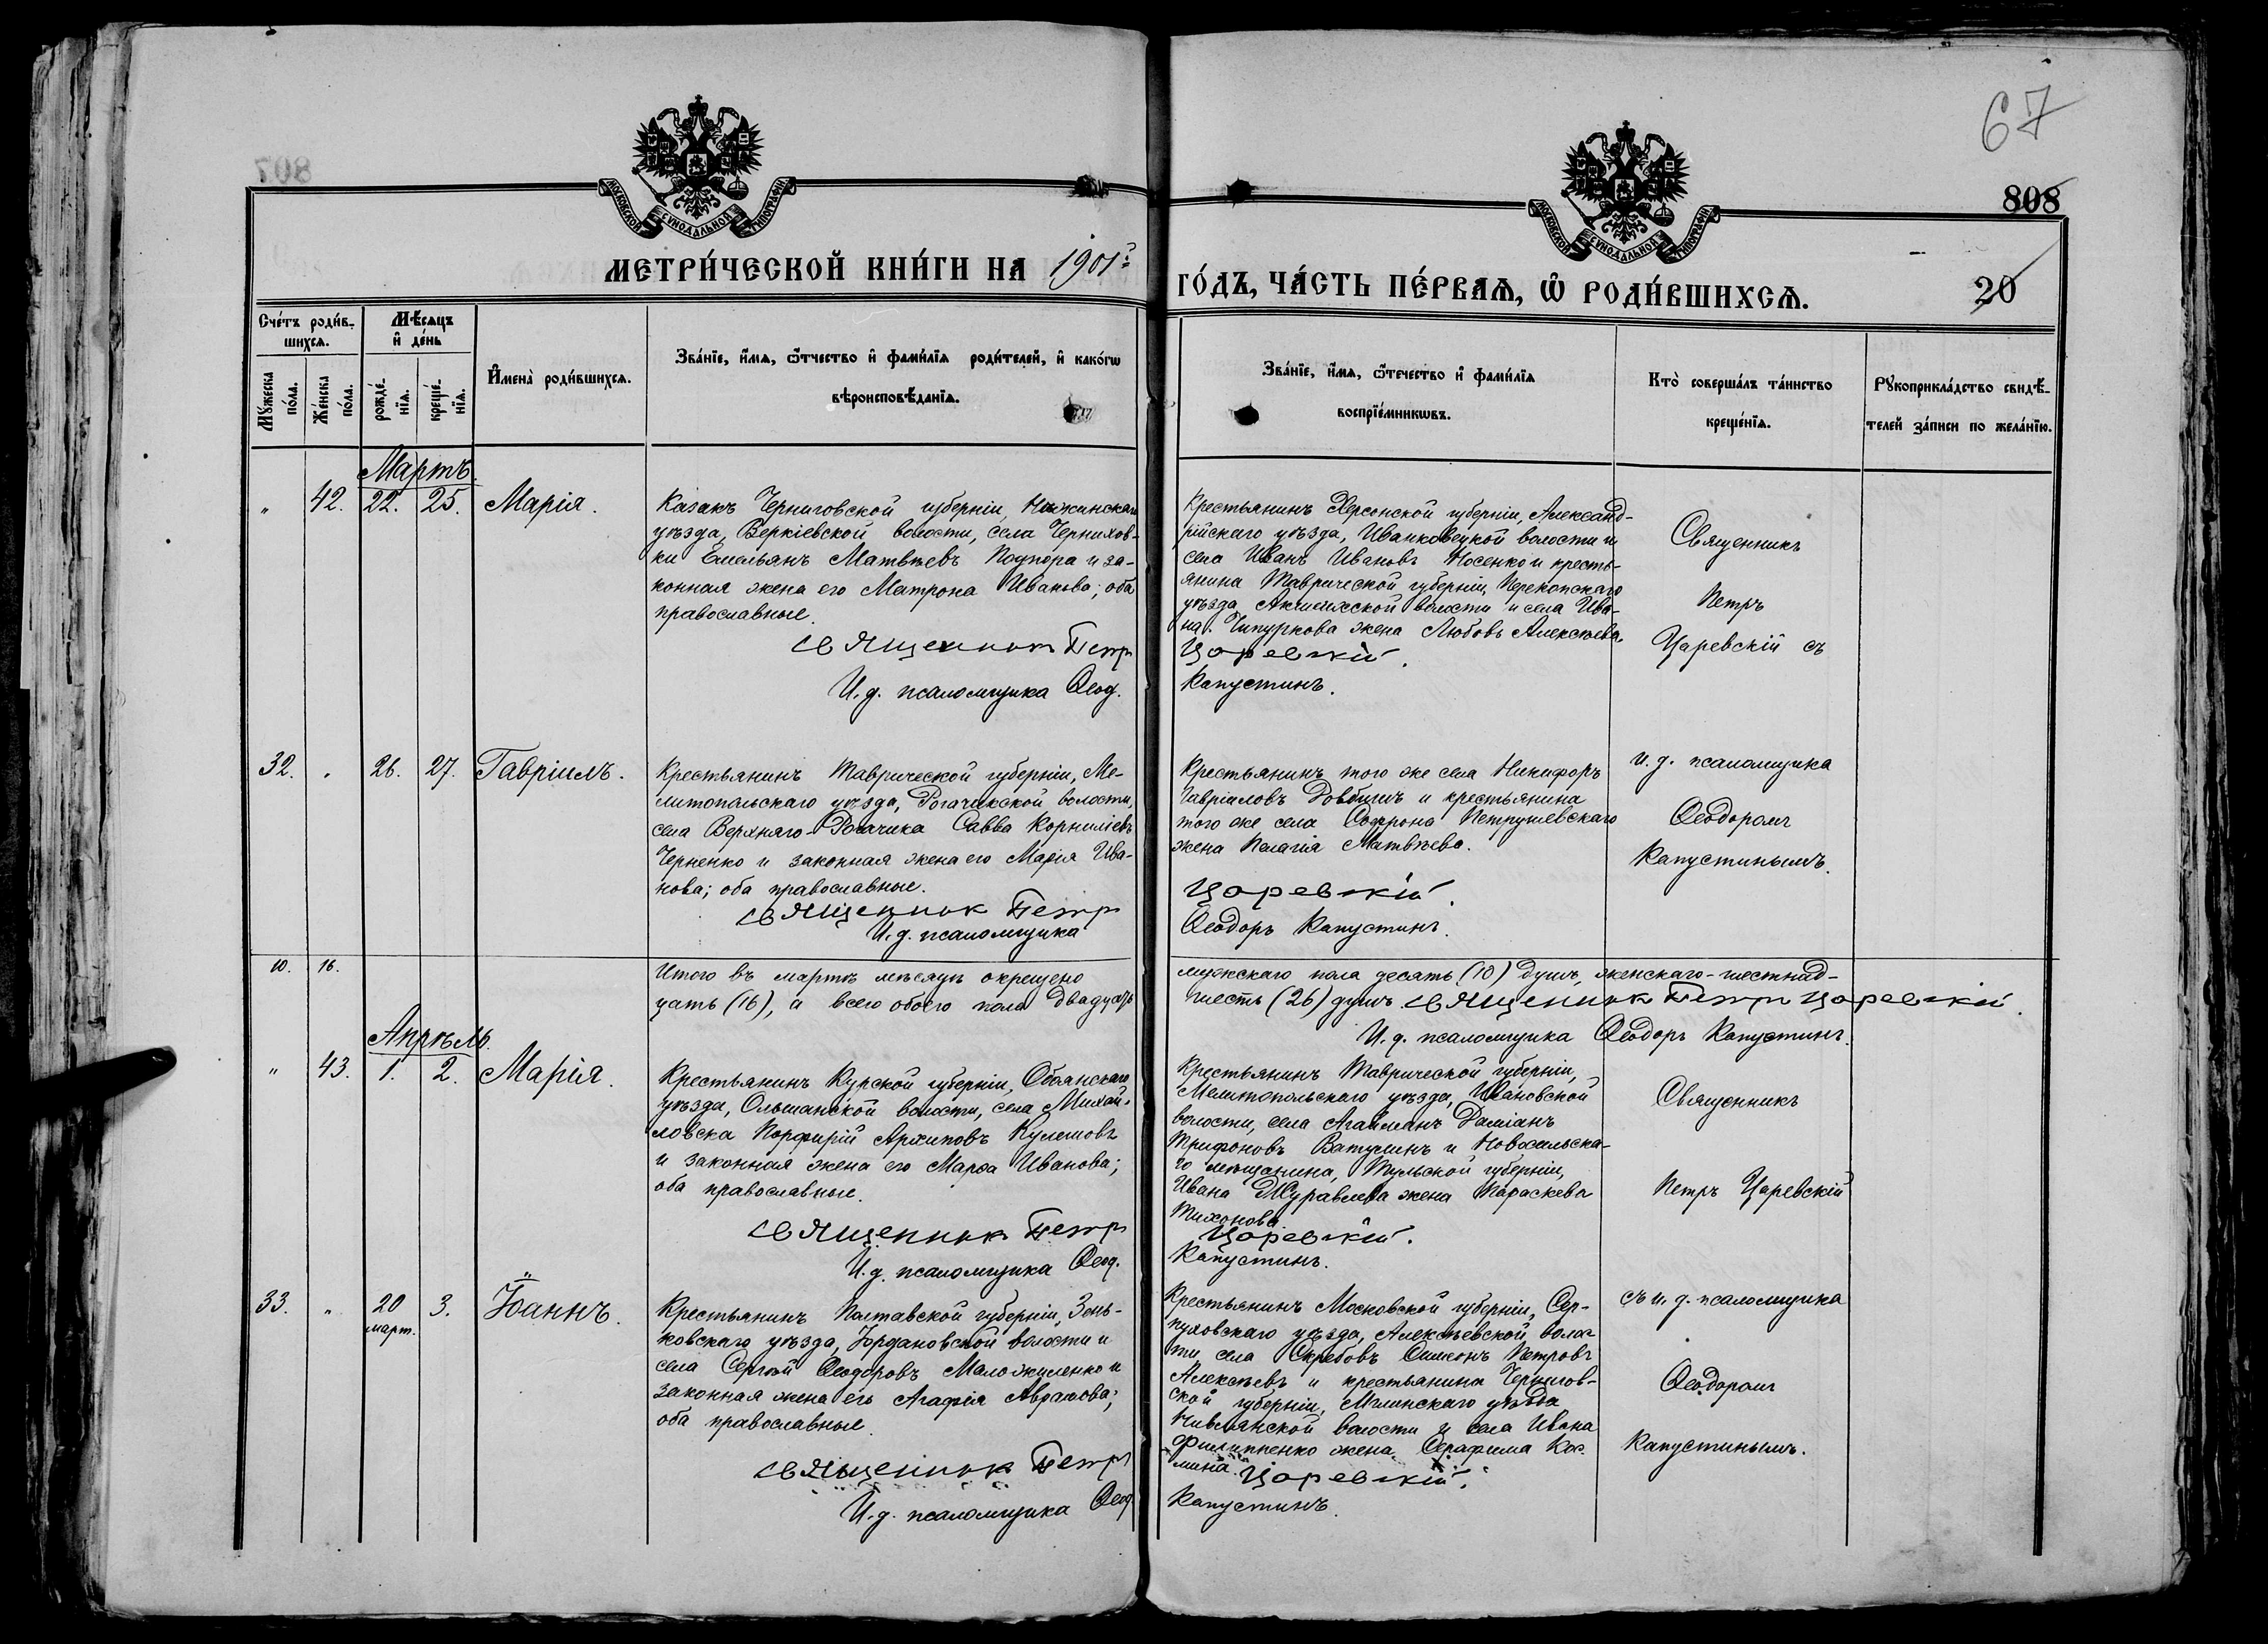 67
807
808
20
МОСКОВСКОЙ СѴНОДАЛЬНОЙ ТИПОГРАФІИ
МОСКОВСКОЙ СѴНОДАЛЬНОЙ ТИПОГРАФІИ
МЕТРИ́ЧЕСКОЙ КНИ́ГИ НА 1901й
ГО́ДЪ, ЧА́СТЬ ПЕ́РВАѦ, Ѽ РОДИ́ВШИХСѦ.
Сче́тъ роди́в-
шихсѧ.
Мѣ́сѧцъ
и҆ де́нь
Мꙋ́жеска
по́ла.
Же́нска
по́ла.
рожде́-
нїѧ.
креще́-
нїѧ.
И҆мена̀ роди́вшихсѧ.
Зва́нїе, и҆́мѧ, ѻ҆́тчество и҆ фами́лїѧ роди́телей, и҆ како́гѡ
вѣроисповѣ́данїѧ.
Зва́нїе, и҆́мѧ, ѻ҆́течество и҆ фами́лїѧ
воспрїе́мникѡвъ.
Кто̀ соверша́лъ та́инство
креще́нїѧ.
Рꙋкоприкла́дство свидѣ́-
телей за́писи по жела́нїю.
Мартъ
" 42. 22. 25. Марія.
Казакъ Черниговской губерніи, Нѣжинскаго
уѣзда, Веркіевской волости, села Черняхов-
ки Емельянъ Матвѣевъ Подпора и за-
конная жена его Матрона Иванова; оба
православные.
Священник Петр
И. д. псаломщика Ѳеод.
Крестьянинъ Херсонской губерніи, Александ-
рійскаго уѣзда, Иванковецкой волости и
села Иванъ Ивановъ Носенко и кресть-
янина Таврической губерніи, Перекопскаго
уѣзда, волости и села Ива-
на Чипуркова жена Любовь Алексѣева.
Царевскій.
Капустинъ.
Священникъ
Петръ
Царевскій съ
32. " 26. 27. Гавріилъ.
Крестьянинъ Таврической губерніи, Ме-
литопольскаго уѣзда, Рогачикской волости,
села Верхняго-Рогачика Савва Корниліевъ
Черненко и законная жена его Марія Ива-
нова; оба православные.
Священник Петр
И. д. псаломщика
Крестьянинъ того же села Никифоръ
Гавріиловъ Довбишъ и крестьянина
того же села Софрона Петрушевскаго
жена Пелагія Матвѣева.
Царевскій.
Ѳеодоръ Капустинъ.
и. д. псаломщика
Ѳеодоромъ
Капустинымъ.
10. 16.
Итого въ мартѣ мѣсяцѣ окрещено
мужскаго пола десять (10) душъ, женскаго-шестнад-
цать (16), а всего обоего пола двадцать
шесть (26) душъ. Священник Петр Царевскій.
И. д. псаломщика Ѳеодоръ Капустинъ.
Апрѣль.
" 43. 1. 2. Марія.
Крестьянинъ Курской губерніи, Обоянскаго
уѣзда, Ольшанской волости, села Михай-
ловска Порфирій Архиповъ Кулешовъ
и законная жена его Марѳа Иванова;
оба православные.
Священник Петр
И. д. псаломщика Ѳеод.
Крестьянинъ Таврической губерніи,
Мелитопольскаго уѣзда, Ивановской
волости, села Агайманъ Даміанъ
Трифоновъ и Новосильска-
го мѣщанина, Тульской губерніи,
Ивана Журавлева жена Параскева
Тихонова.
Царевскій.
Капустинъ.
Священникъ
Петръ Царевскій
33. " 20 март. 3. Іоаннъ.
Крестьянинъ Полтавской губерніи, Зень-
ковскаго уѣзда, Іордановской волости и
села Сергѣй Ѳеодоровъ Маложиленко и
законная жена его Агафія Аврамова;
оба православные.
Священник Петр
И. д. псаломщика Ѳеод.
Крестьянинъ Московской губерніи, Сер-
пуховскаго уѣзда, Алексѣевской волос-
ти села Скребовъ Симеонъ Петровъ
Алексѣевъ и крестьянина Чернигов-
ской губерніи, Мглинскаго уѣзда
Нивнянской волости и села Ивана
Филиппенко жена Серафима Кос-
мина.
Царевскій.
Капустинъ.
съ и. д. псаломщика
Ѳеодоромъ
Капустинымъ.